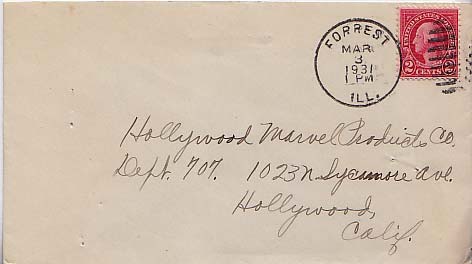 FORREST
MAR
3
1931
1 PM
ILL.
UNITED STATES POSTAGE
2 CENTS 2
Hollywood Marvel Products Co.
Dept. 707. 1023 N. Sycamore Ave.
Hollywood,
Calif.